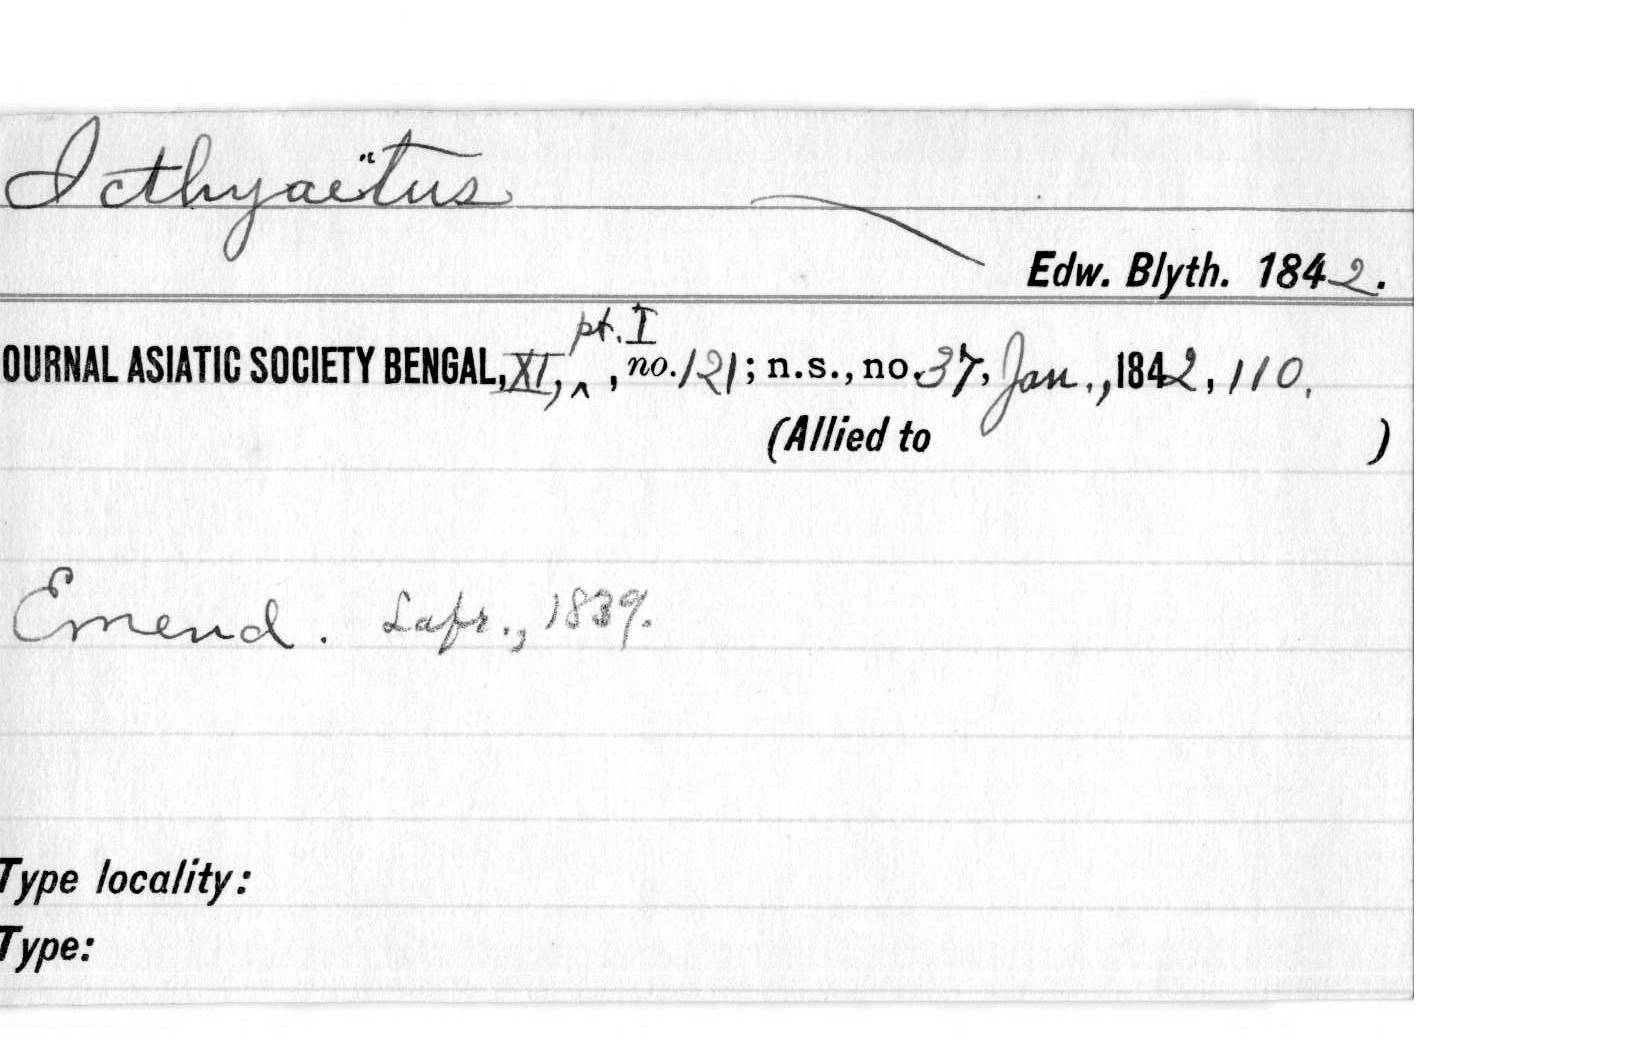 Icthyaëtus
Edw. Blyth. 1842.
OURNAL ASIATIC SOCIETY BENGAL, XI, pt. I, no. 121; n.s., no. 37, Jan., 1842, 110.
(Allied to )
Emend. Lafr., 1839.
Type locality:
Type: